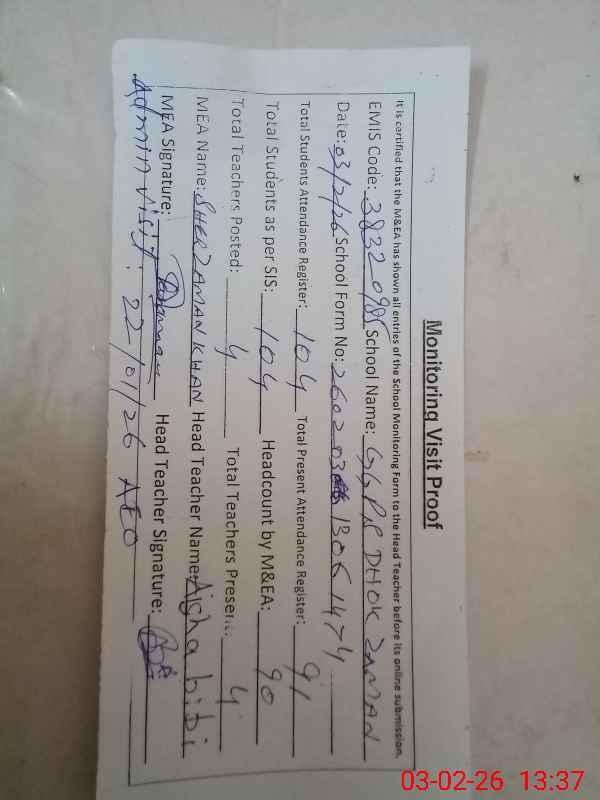 Monitoring Visit Proof
It is certified that the M&EA has shown all entries of the School Monitoring Form to the Head Teacher before its online submission.
EMIS Code: School Name: GGPS DHOK ZAMAN
Date: 03/2/26 School Form No:
Total Students Attendance Register: 104 Total Present Attendance Register: 91
Total Students as per SIS: 104 Headcount by M&EA: 90
Total Teachers Posted: 4 Total Teachers Present: 4
MEA Name: SHER ZAMAN KHAN Head Teacher Name: Aisha bibi
MEA Signature: Head Teacher Signature:
Admin visit: 22/01/26 AEO
03-02-26 13:37